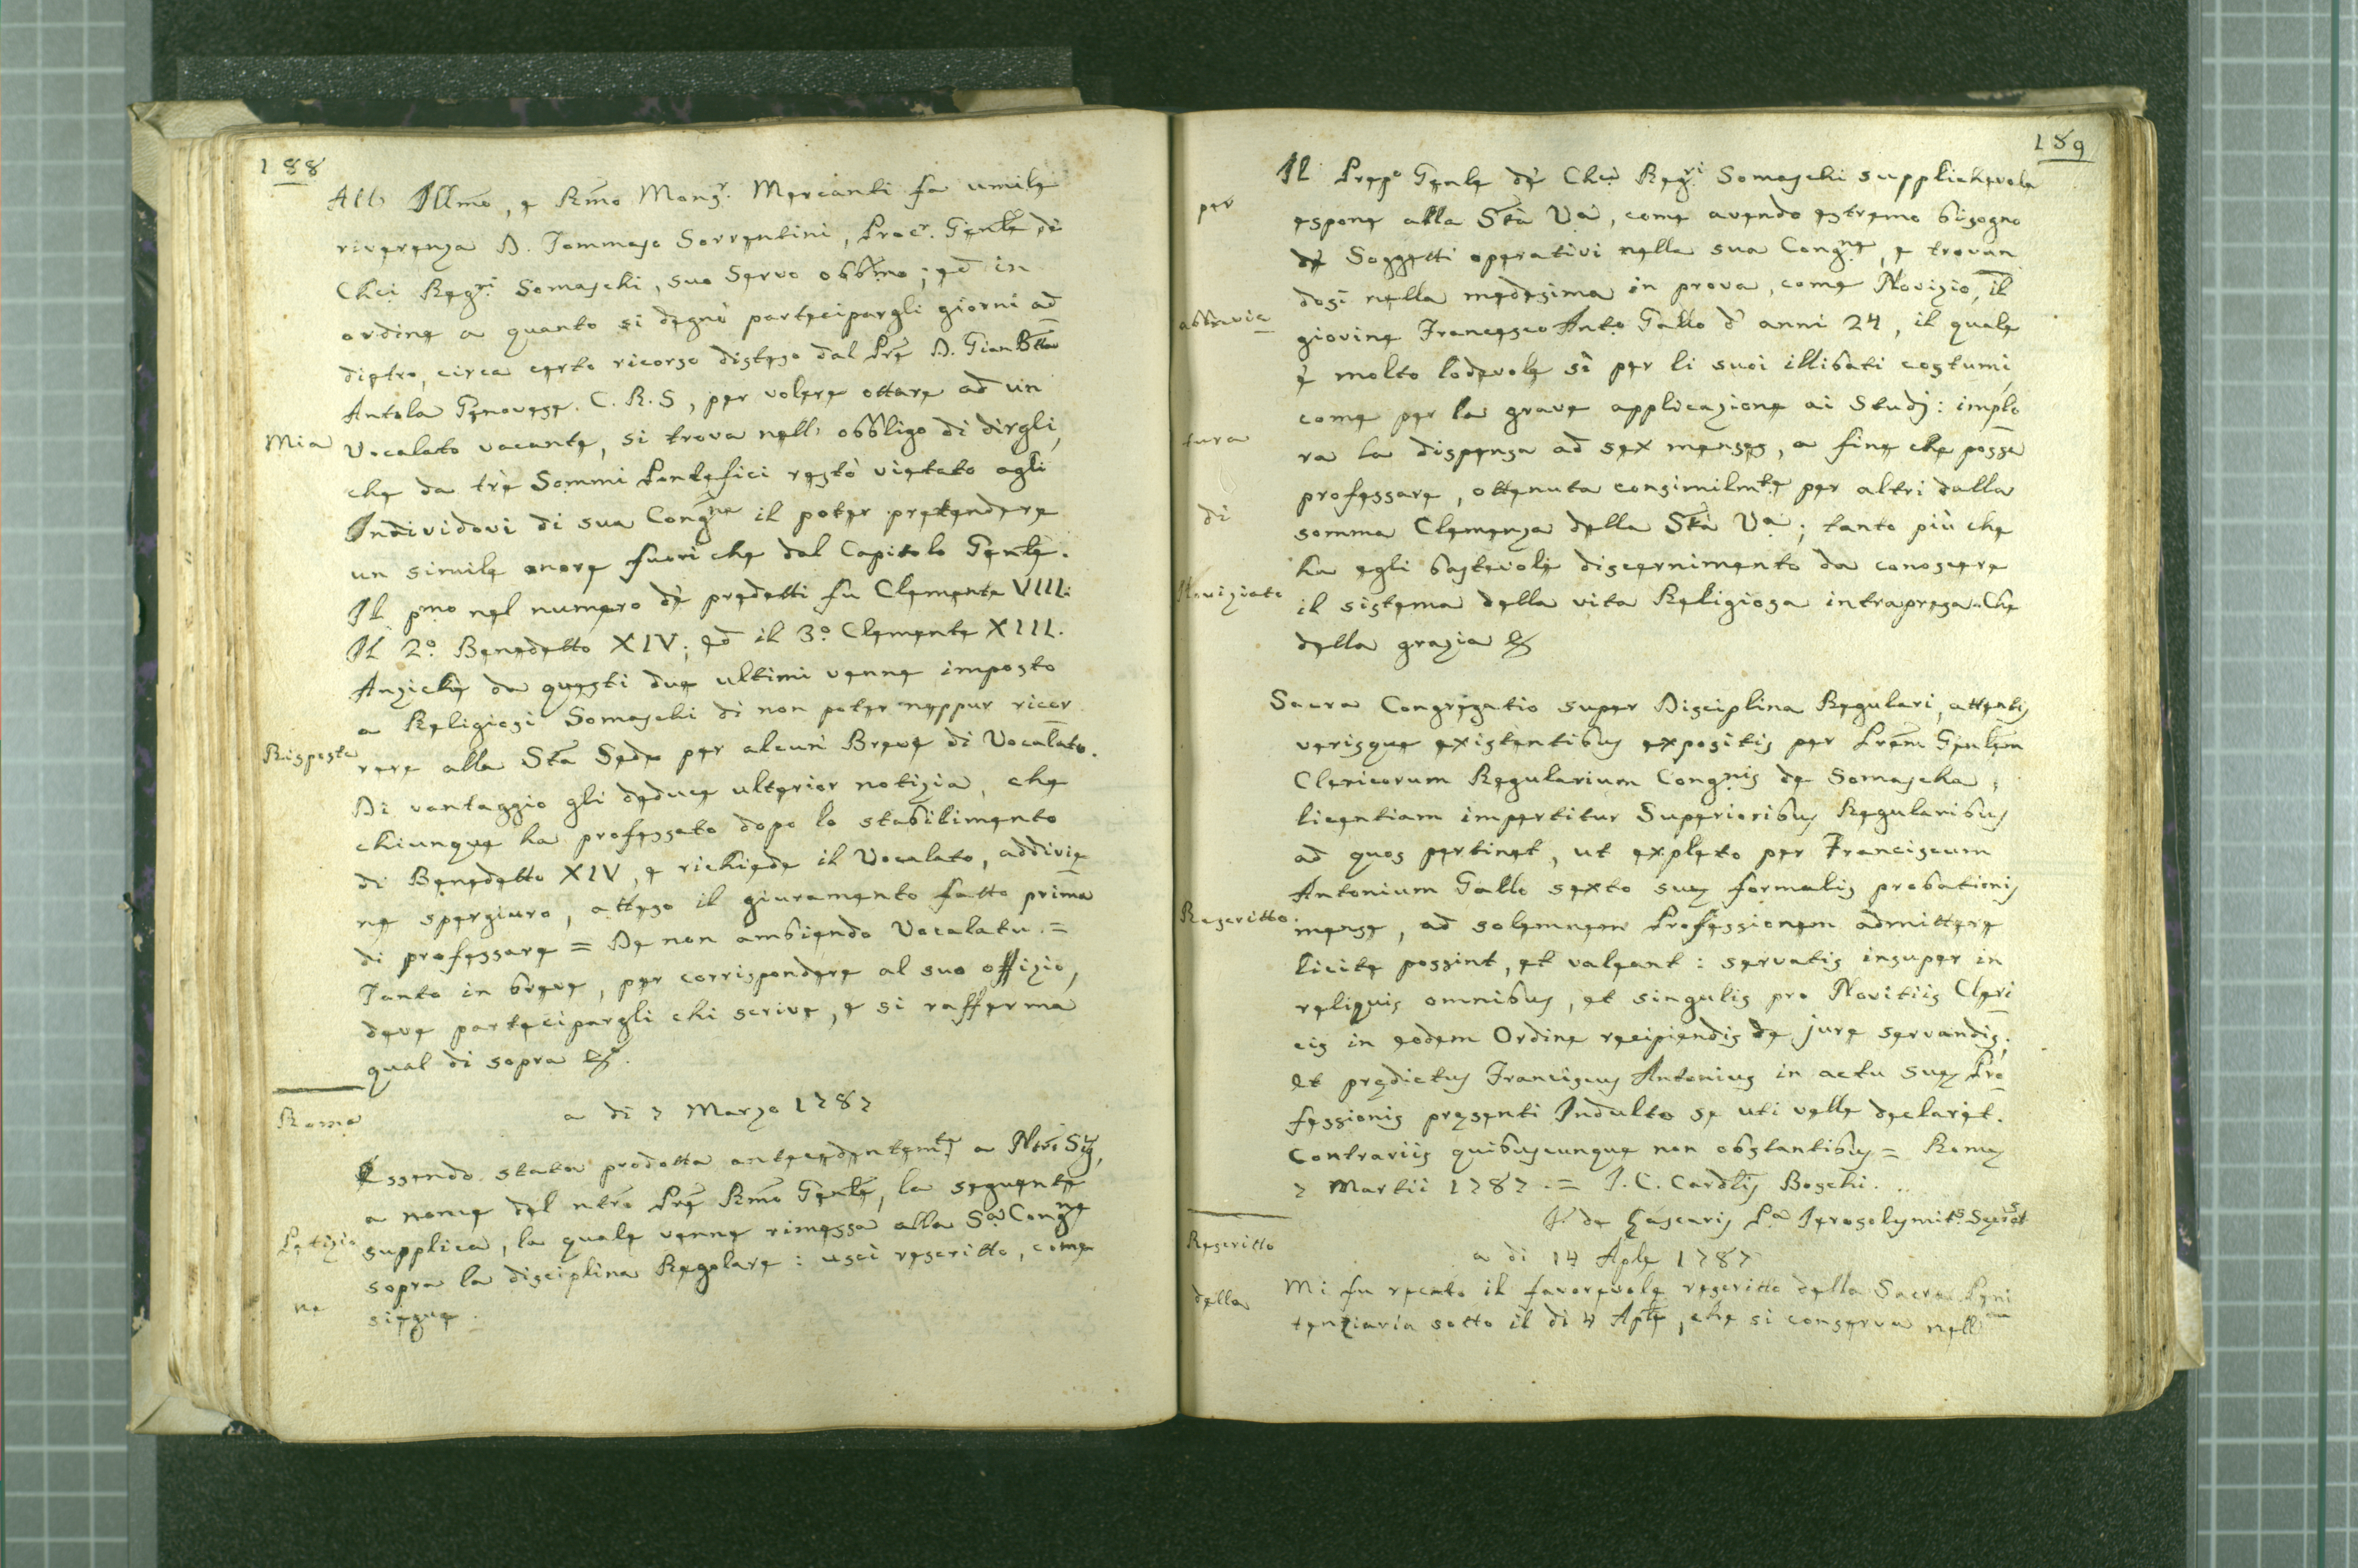 188
All' Illmo, e Rmo Monsr. Mercanti fa umile
riverenza D. Tommaso Sorrentini, Procr. Genle di
Chci Regri Somaschi, suo Servo obbmo; ed in
ordine a quanto si degnò partecipargli giorni ad
dietro, circa certo ricorso disteso dal Pre D. Gian Btta
Antola Genovese. C. R. S, per volere ottare ad un
Mia
Vocalato vacante, si trova nell' obbligo di dirgli,
che da trè Sommi Pontefici restò vietato agli
Individovi di sua Congne il poter pretendere
un simile onore fuori che dal Capitolo Genle.
Il pmo nel numero dè predetti fu Clemente VIII:
Il 2º Benedetto XIV; ed il 3º Clemente XIII.
Anzichè da questi due ultimi venne imposto
a Religiosi Somaschi di non poter neppur ricor
Risposta
rere alla Sta Sede per alcun Breve di Vocalato.
Di vantaggio gli deduce ulterior notizia, che
chiunque ha professato dopo lo stabilimento
di Benedetto XIV, e richiede il Vocalato, addivie
ne spergiuro, atteso il giuramento fatto prima
di professare = De non ambiendo Vocalatu =
Tanto in breve, per corrispondere al suo offizio,
deve partecipargli chi scrive, e si rafferma
qual di sopra &.
Roma
a di 7 Marzo 1787
Essendo stata prodotta antecedentemte a Nro Sig,
a nome del ntro Pre Rmo Genle, la seguente
Petizio
supplica, la quale venne rimessa alla Sa Congne
sopra la disciplina Regolare: uscì rescritto, come
ne
siegue.
189
Il Prepo Genle dè Chci Regri Somaschi supplichevole
per
espone alla Stà Va, come avendo estremo bisogno
dè Soggetti operativi nella sua Congne, e trovan
dosi nella medesima in prova, come Novizio, il
abbrevia
giovine Francesco Anto Gallo d' anni 24, il quale
è molto lodevole sì per li suoi illibati costumi,
come per la grave applicazione ai Studj: implo
tura
ra la dispensa ad sex menses, a fine che possa
professare, ottenuta consimilmte per altri dalla
di
somma Clemenza della Stà Va; tanto più che
ha egli bastevole discernimento da conoscere
Noviziato
il sistema della vita Religiosa intrapresa. Che
della grazia &
Sacra Congregatio super Disciplina Regulari, attentis
verisque existentibus expositis per Prem Genlem
Clericorum Regularium Congnis de Somascha,
licentiam impertitur Superioribus Regularibus
ad quos pertinet, ut expleto per Franciscum
Antonium Gallo sexto suę formalis probationis
Rescritto
mense, ad solemnem Professionem admittere
licite possint, et valeant: servatis insuper in
reliquis omnibus, et singulis pro Novitiis Cleri
cis in eodem Ordine recipiendis de jure servandis;
et prędictus Franciscus Antonius in actu suę Pro
fessionis pręsenti Indulto se uti velle declaret.
Contrariis quibuscunque non obstantibus = Romę
7 Martii 1787. = J. C. Cardlis Boschi.
F. de Lascaris Pa Ierosolymits Secret
Rescritto
a di 14 Aple 1787
della
Mi fu recato il favorevole rescritto della Sacra Peni
tenziaria sotto il di 4 Aple, che si conserva nell'